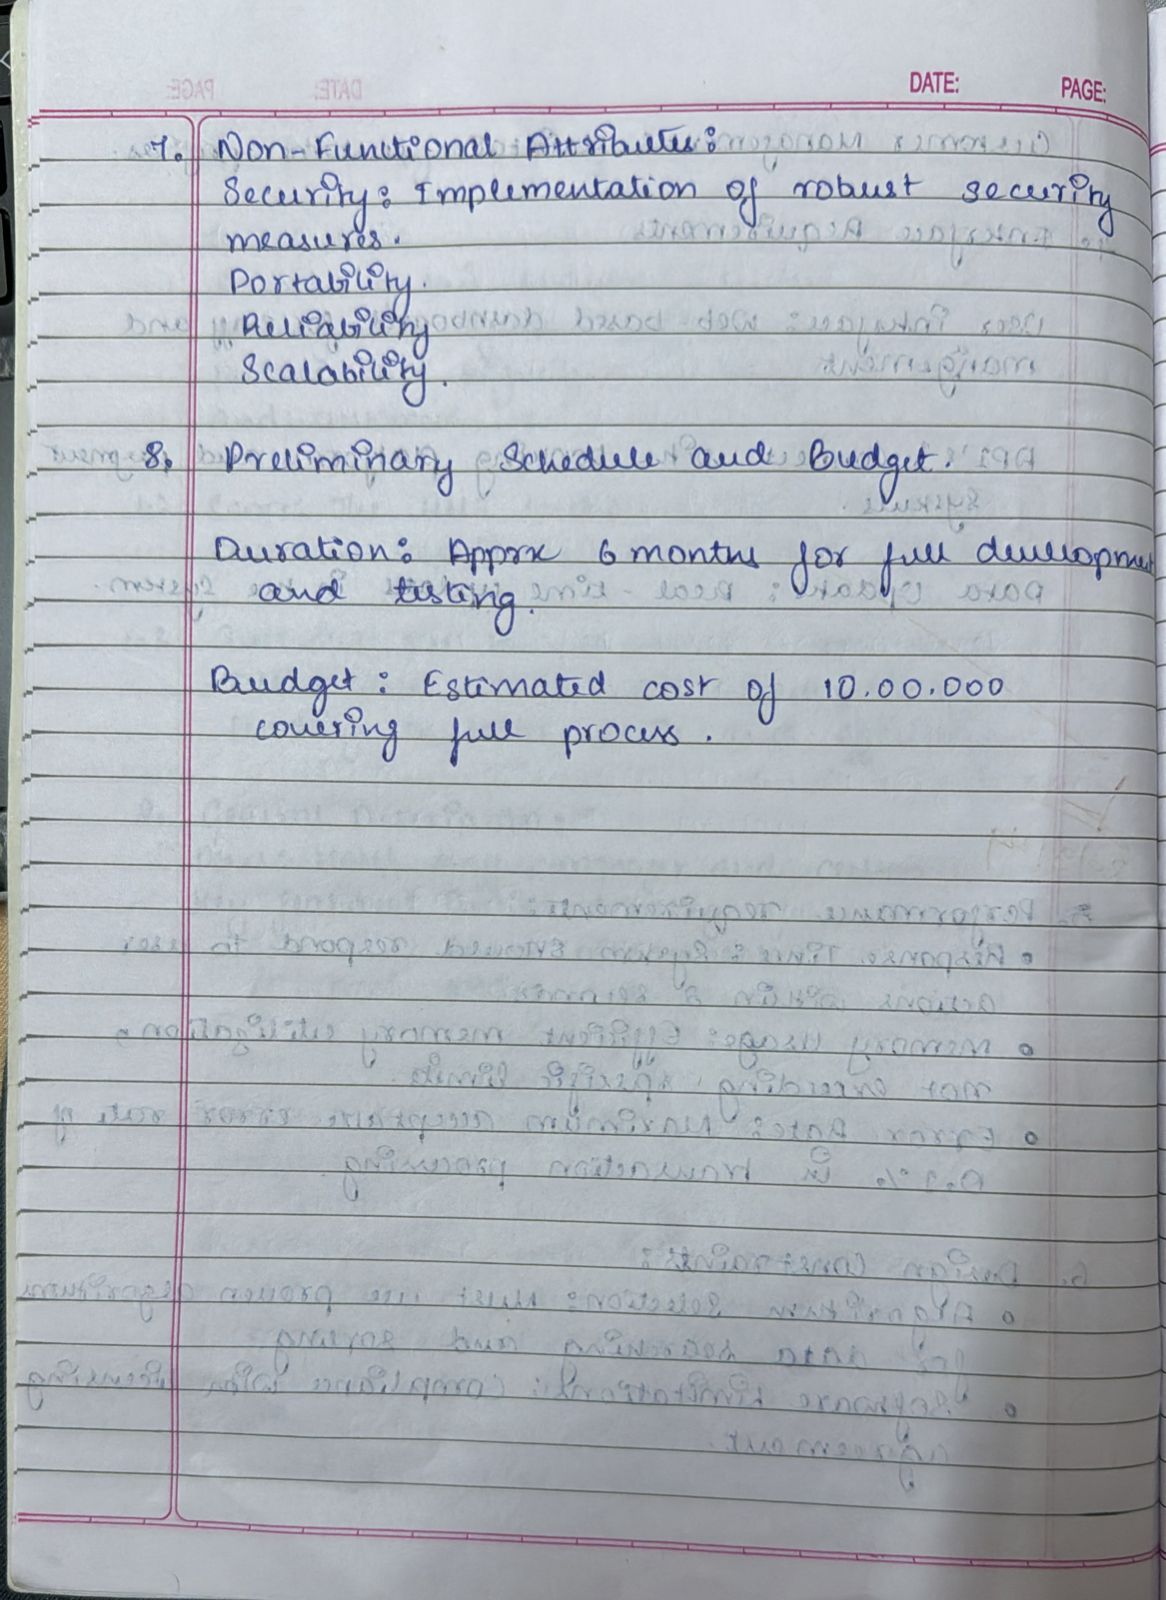 DATE: PAGE:
7. Non-Functional Attributes:
Security: Implementation of robust security
measures.
Portability.
Reliability
Scalability.
8. Preliminary Schedule and Budget.
Duration: Apprx 6 months for full development
and testing.
Budget: Estimated cost of 10.00.000
covering full process.